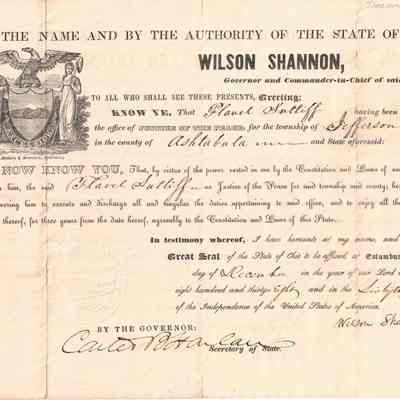 Decem
THE NAME AND BY THE AUTHORITY OF THE STATE OF
WILSON SHANNON,
Governor and Commander-in-Chief of said
TO ALL WHO SHALL SEE THESE PRESENTS, Greeting:
KNOW YE, That Flavel Sutliff having been
the office of JUSTICE OF THE PEACE, for the township of Jefferson
in the county of Ashtabula and State aforesaid:
NOW KNOW YOU, That, by virtue of the power vested in me by the Constitution and Laws of
him, the said Flavel Sutliff as Justice of the Peace for said township and county; he
him to execute and discharge all and singular the duties appertaining to said office, and to enjoy all the
thereof, for three years from the date hereof, agreeably to the Constitution and Laws of this State.
In testimony whereof, I have hereunto set my name, and
Great Seal of the State of Ohio to be affixed, at Columbus
day of December in the year of our Lord
eight hundred and thirty eight and in the Sixty
of the Independence of the United States of America.
Wilson Sha
BY THE GOVERNOR:
Carter B Harlan
Secretary of State.